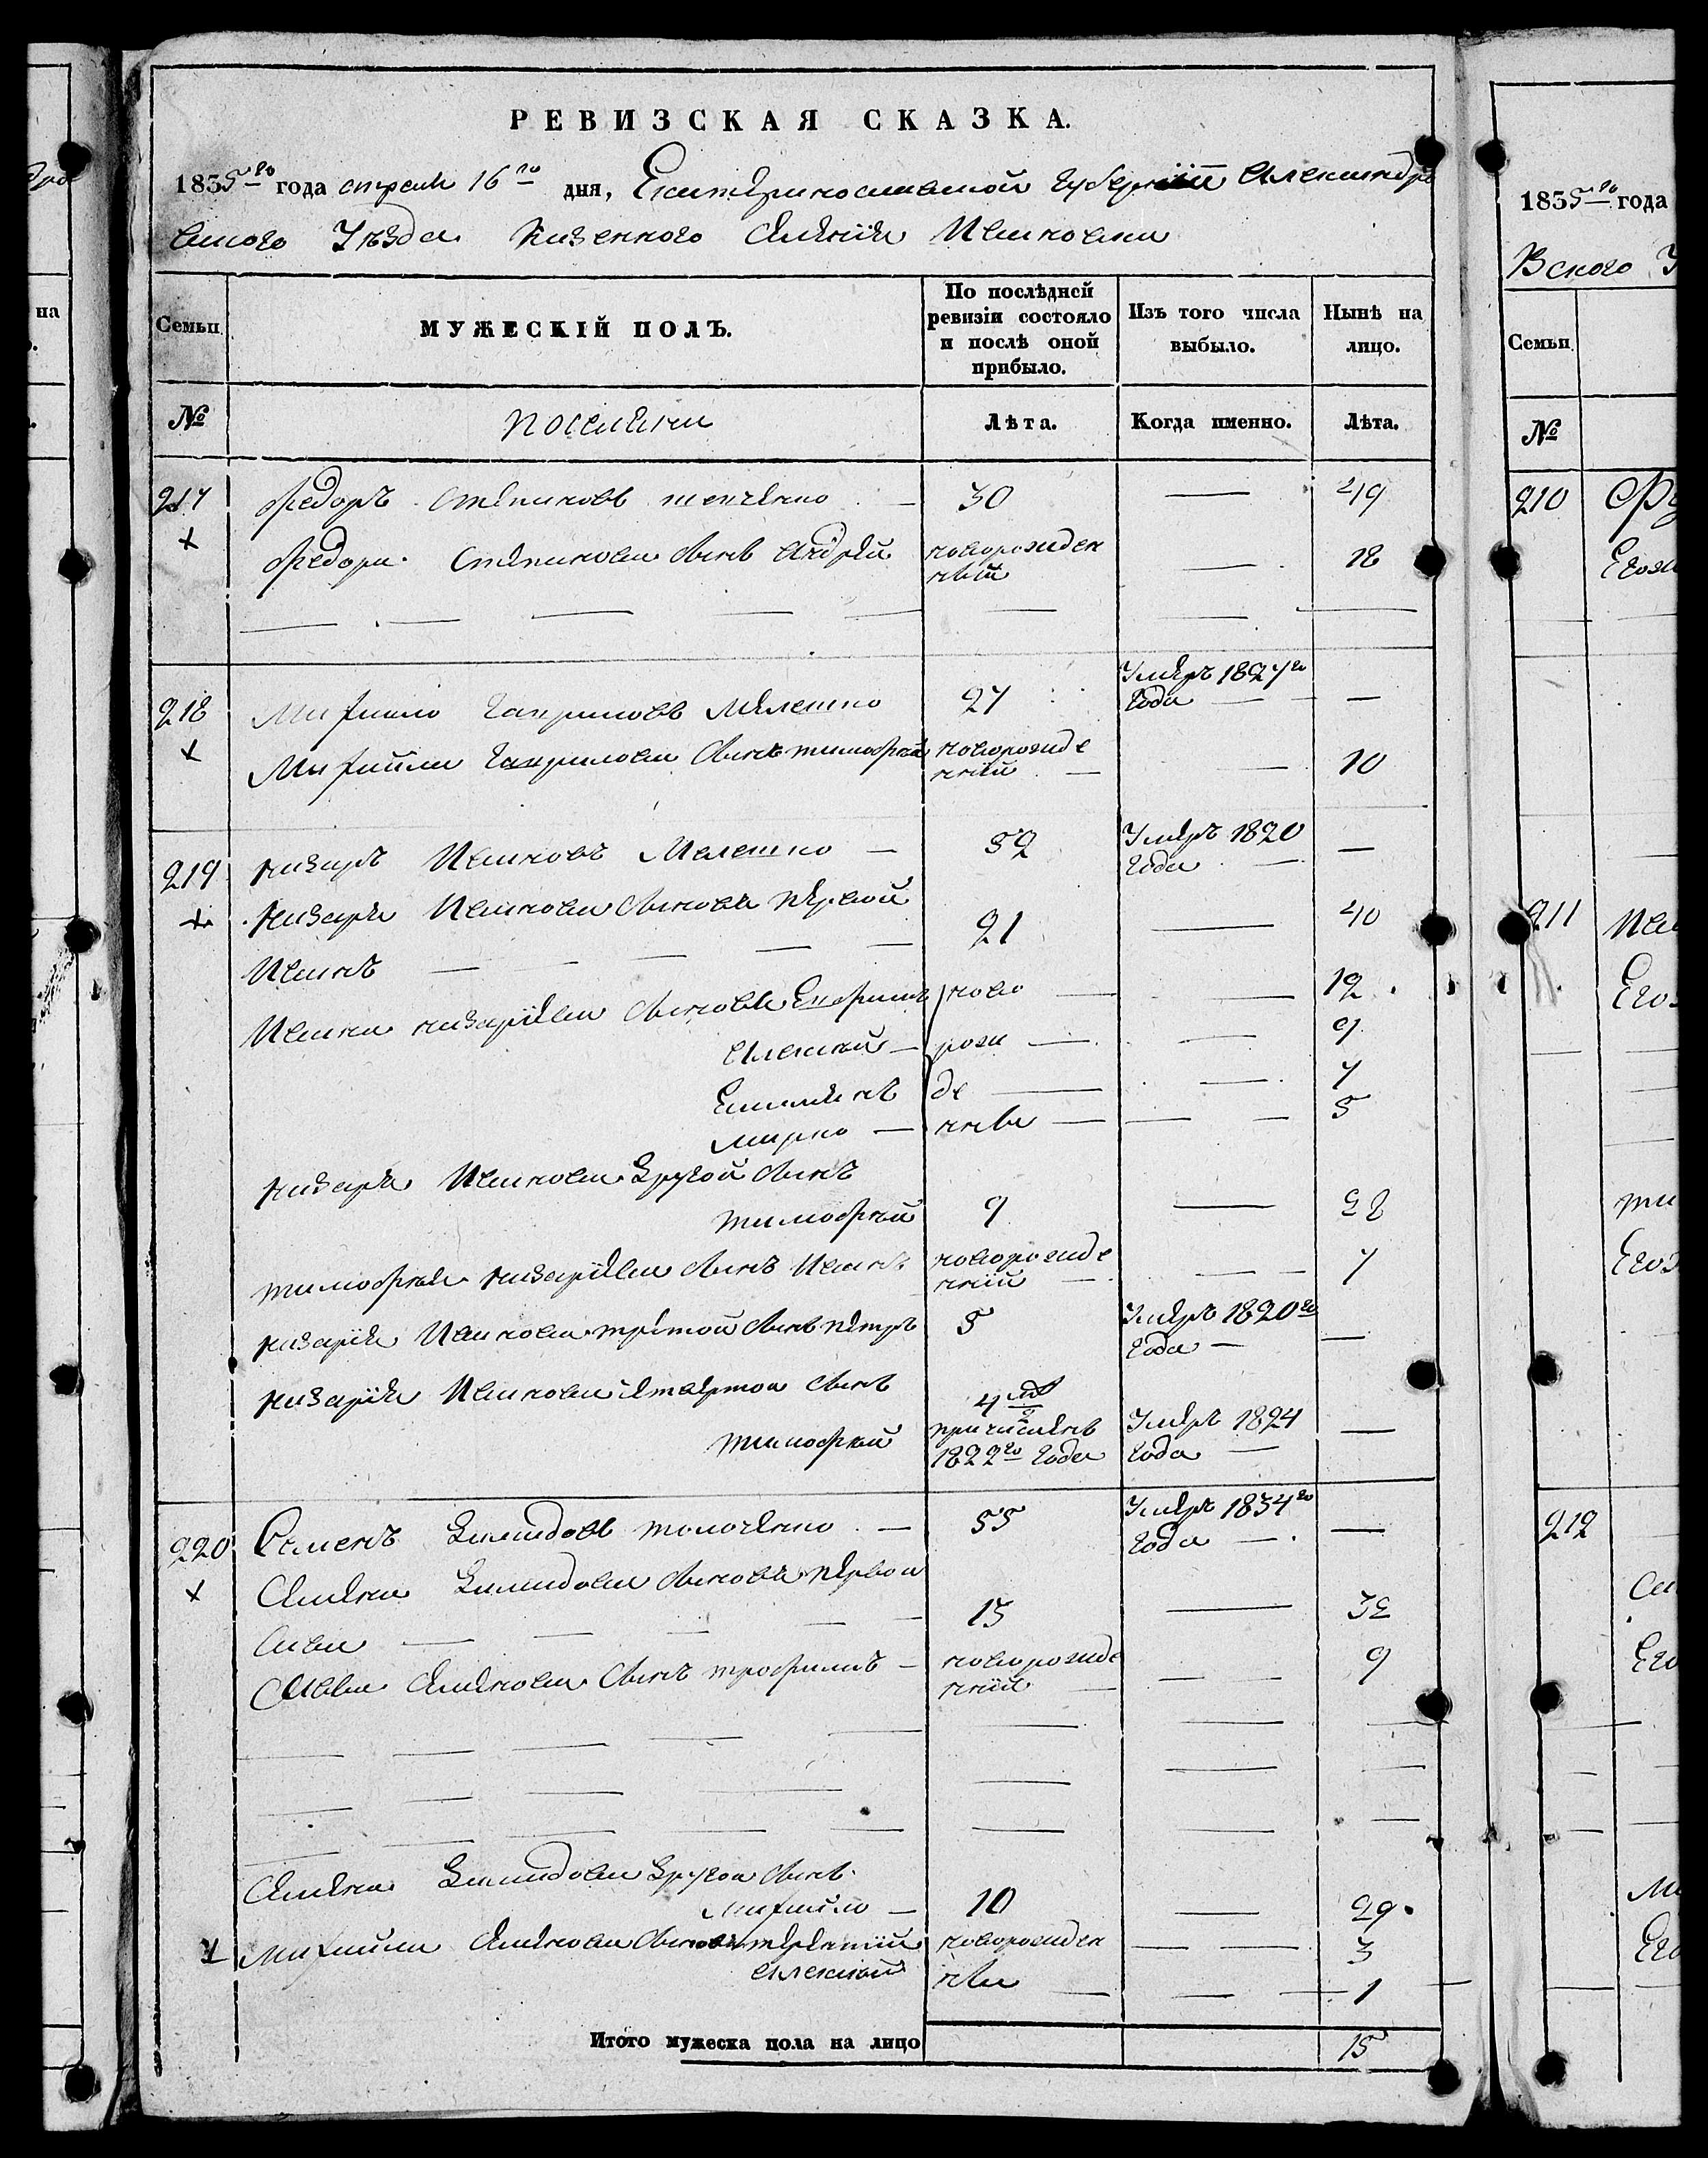 РЕВИЗСКАЯ СКАЗКА.
1835го года апреля 16го дня, Екатеринославской губернии Александро
вского Уезда Казенного Селения Ивановки
Семьи. МУЖЕСКІЙ ПОЛЪ. По послѣдней ревизіи состояло и послѣ оной прибыло. Изъ того числа выбыло. Нынѣ на лицо.
№ поселяни Лѣта. Когда именно. Лѣта.
217 Федоръ Степановъ 30 — 49
Федора Степанова сынъ Андрей новорожден
ный — 18
218 Михайло Гавриловъ Мелешко 27 Умеръ 1827го
года —
Михайли Гаврилова сынъ тимофей новорожде
нній — 10
219 назаръ Ивановъ Мелешко — 52 Умеръ 1820
года —
назара Иванова сыновя первой
Иванъ — 21 — 40
Ивана назариева сыновя Ефимъ ново — 12
Алексей — рож — 9
Емилянъ де — 7
марко — нны — 5
назара Иванова другой сынъ
тимофей 9 — 28
тимофея назариева сынъ Иванъ новорожде
нній — 7
назария Иванова третой сынъ петръ 5 Умеръ 1820го
года —
назария Иванова четвертои сынъ 4
тимофей причисленъ
1822го года Умеръ 1824
года —
220 Семенъ Демидовъ толоченко — 55 Умеръ 1834го
года —
Семена Демидова сыновя первои
сава — 13 — 32
Савы Семенова сынъ трофимъ — новорожде
нній — 9
Семена Демидова другои сынъ
михайло — 10 — 29
михайли Семенова сыновя терентий новорожден — 3
алексей ны — 1
Итого мужеска пола на лицо 15
1835го года
Вского У
Семьи.
№
210
Егож
211
Его
212
Его
Его
на